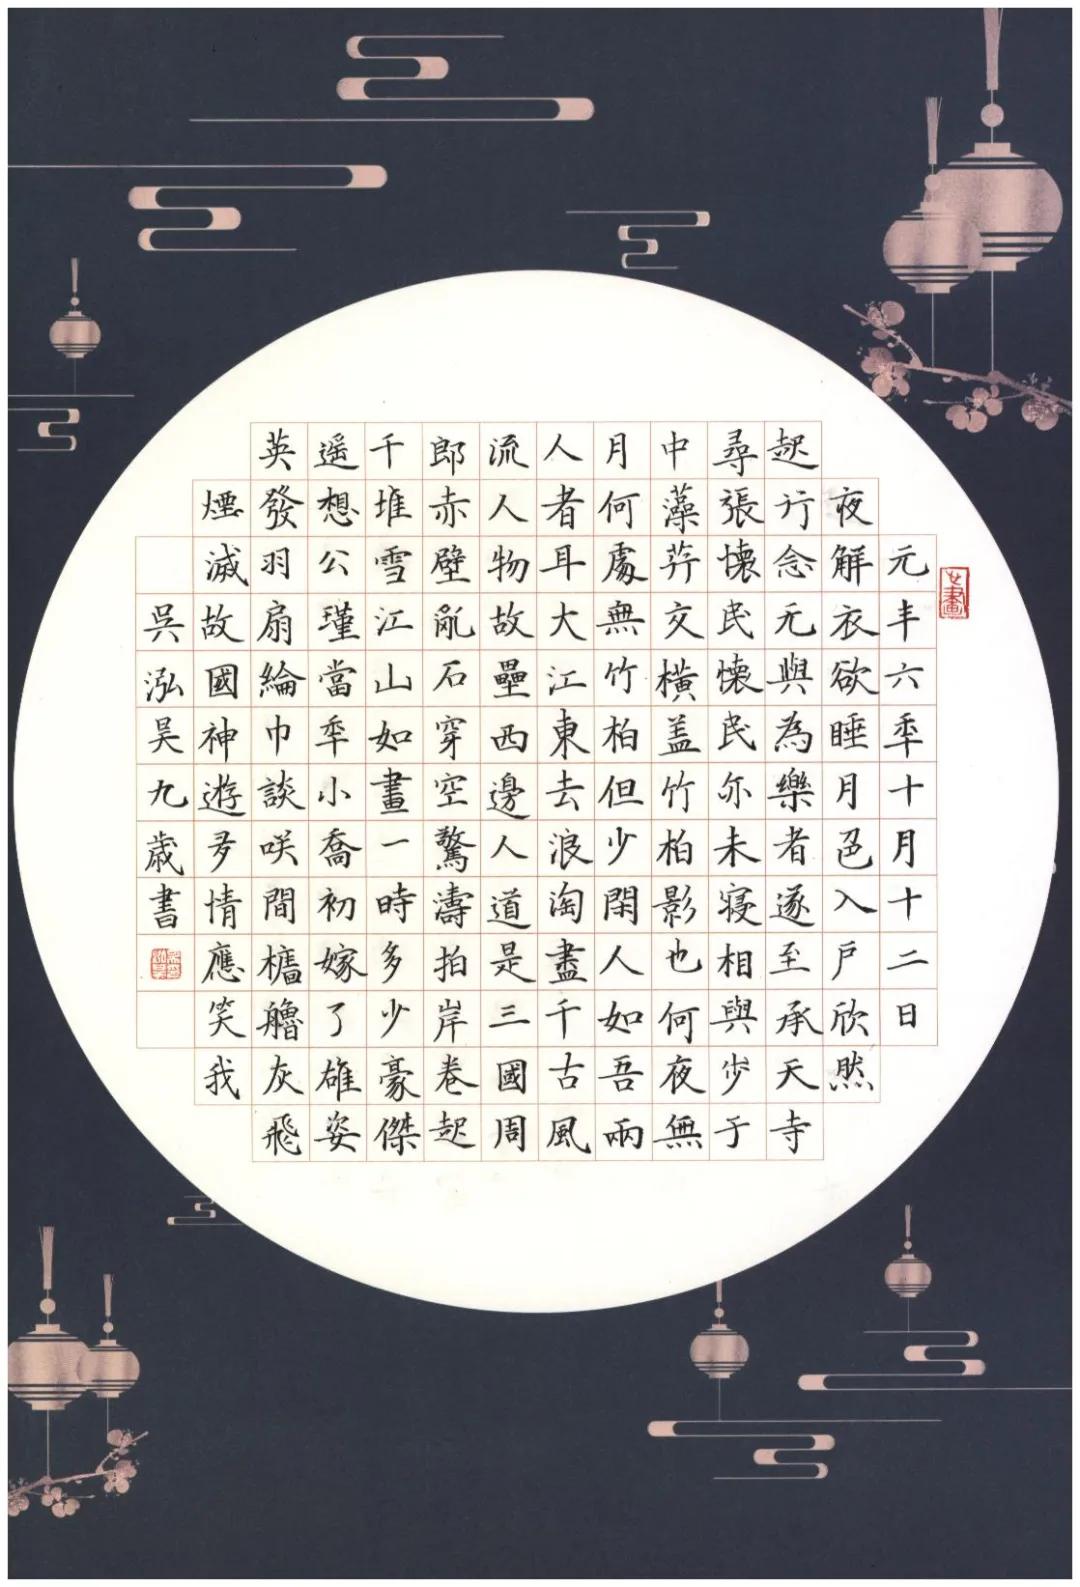 元丰六秊十月十二日
夜解衣欲睡月色入戶欣然
起行念无與為樂者遂至承天寺
尋張懷民懷民亦未寢相與步于
中藻荇交橫盖竹柏影也何夜無
月何處無竹柏但少閑人如吾兩
人者耳大江東去浪淘盡千古風
流人物故壘西邊人道是三國周
郎赤壁亂石穿空驚濤拍岸卷起
千堆雪江山如畫一時多少豪傑
遥想公瑾當秊小喬初嫁了雄姿
英發羽扇綸巾談咲間檣艣灰飛
煙滅故國神遊多情應笑我
吳泓昊九歲書